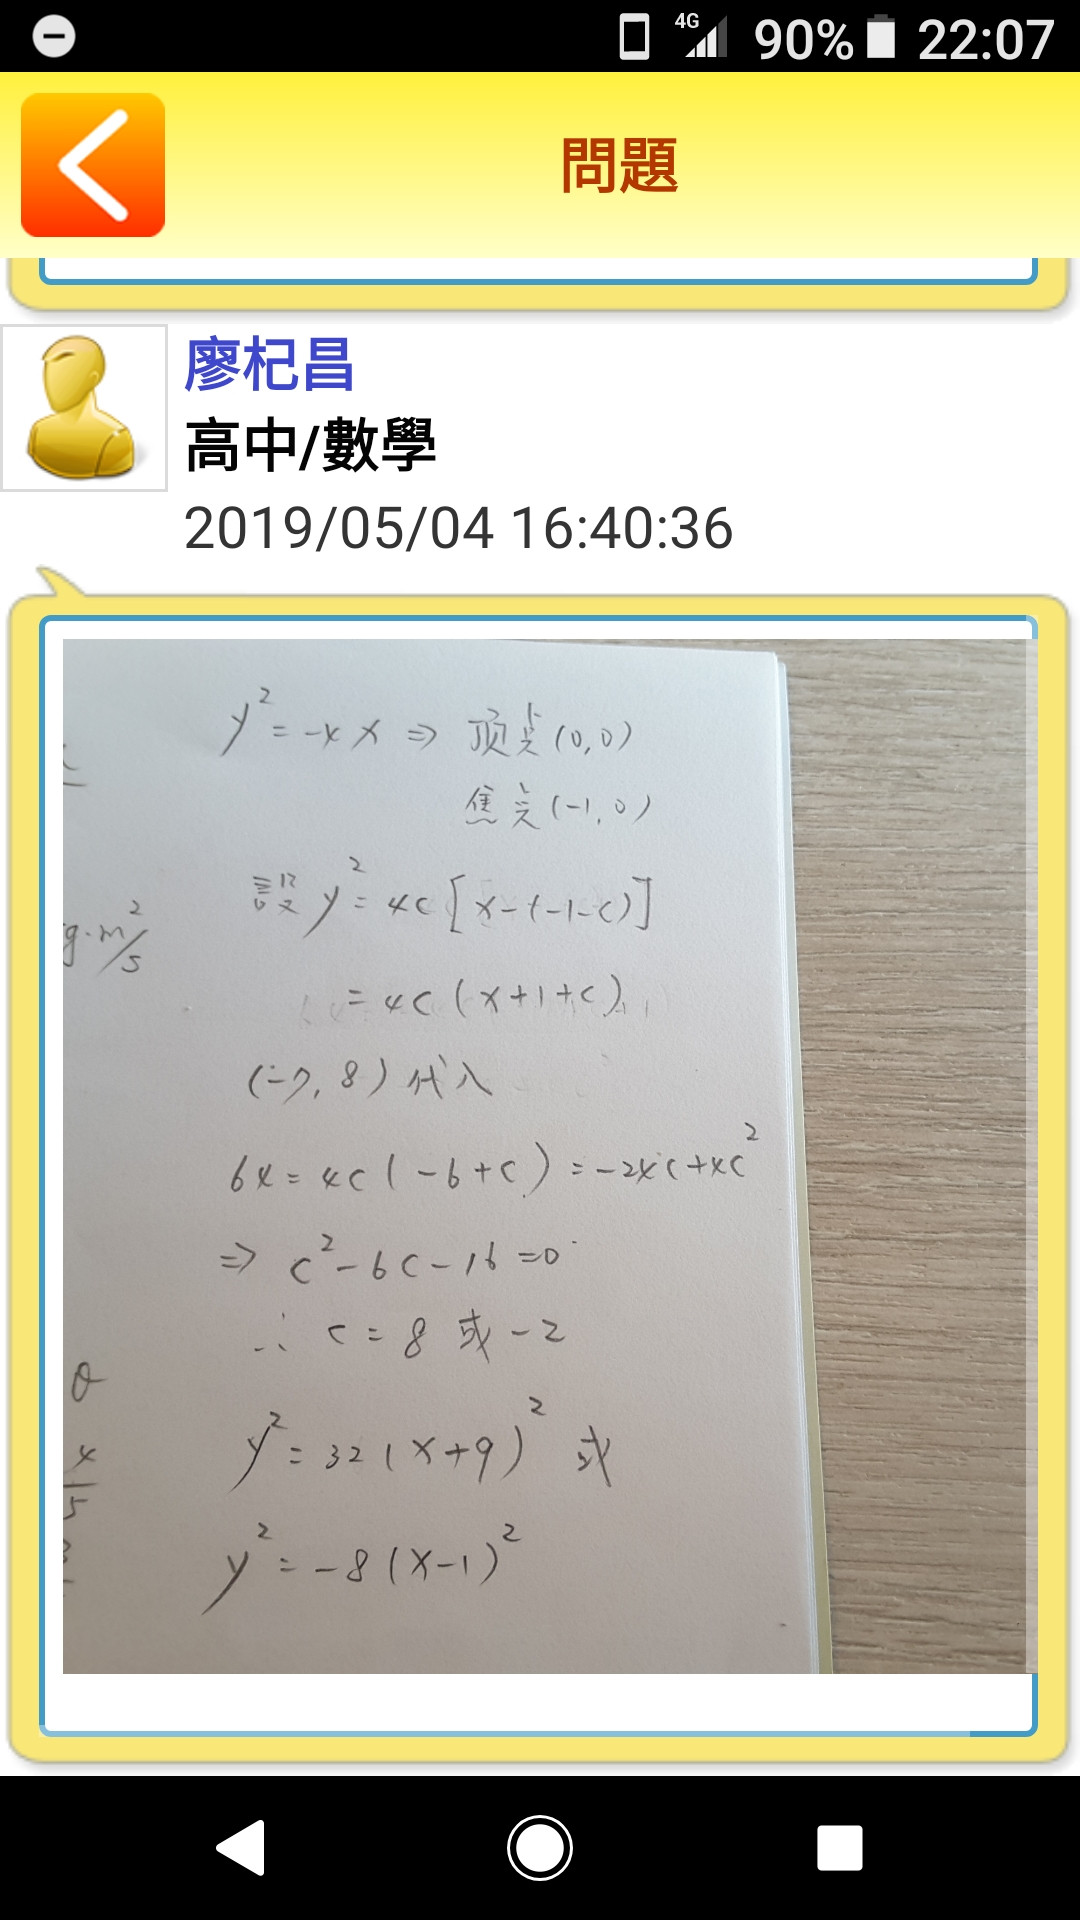 4G 90% 22:07
問題
廖杞昌
高中/數學
2019/05/04 16:40:36
y² = -4x ⇒ 顶点(0,0)
焦点(-1,0)
設 y² = 4c[x-(-1-c)]
= 4c(x+1+c)
(-7,8)代入
64 = 4c(-6+c) = -24c+4c²
⇒ c²-6c-16=0
∴ c = 8 或 -2
y² = 32(x+9)² 或
y² = -8(x-1)²
g·m²/s
θ
4
5